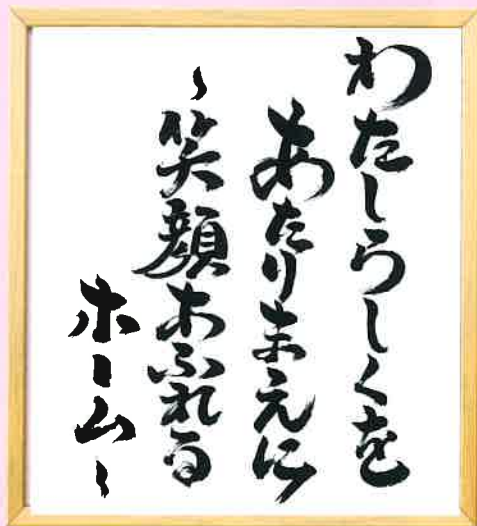 わたしらしくを
あたりまえに
～笑顔あふれる
ホーム～